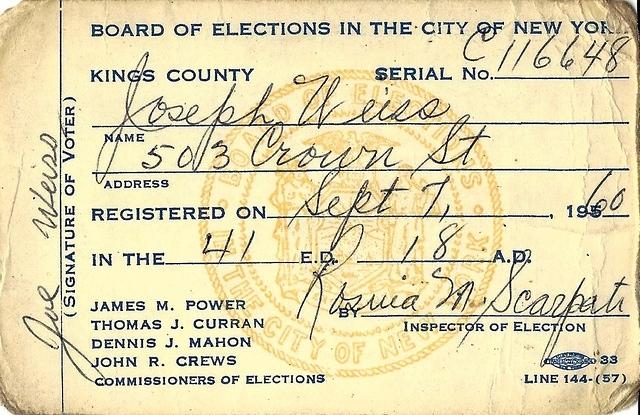 BOARD OF ELECTIONS IN THE CITY OF NEW YOR
KINGS COUNTY SERIAL No. C116648
Joseph Weiss
NAME
503 Crown St
ADDRESS
REGISTERED ON Sept 7, , 1960
IN THE 41 E.D. 18 A.D.
JAMES M. POWER
THOMAS J. CURRAN
DENNIS J. MAHON
JOHN R. CREWS
COMMISSIONERS OF ELECTIONS
BY M. Scarpati
INSPECTOR OF ELECTION
33
LINE 144-(57)
Joe Weiss
(SIGNATURE OF VOTER)
BOARD OF ELECTIONS
THE CITY OF NEW YORK